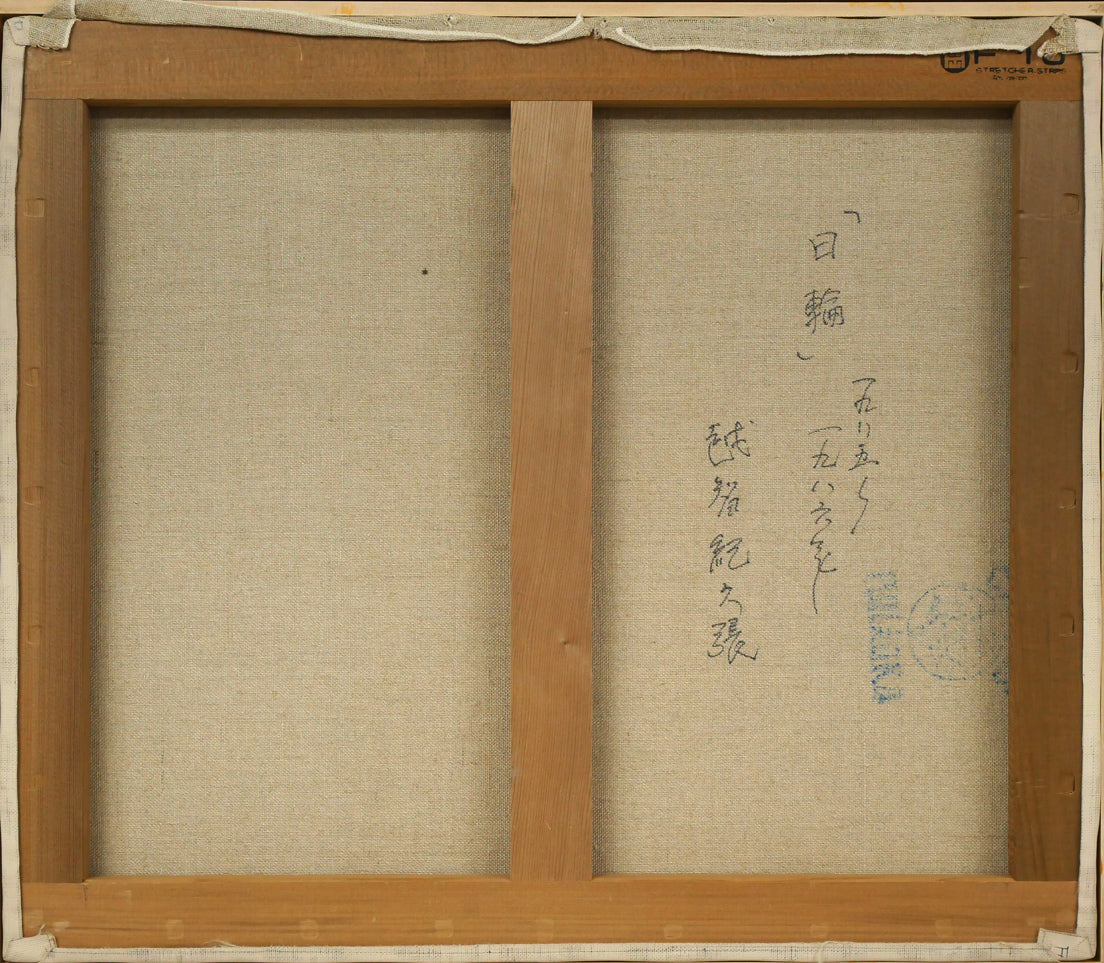 「日輪」
一九八五〜
一九八六年
越智紀久張
STRETCHER STRIPS